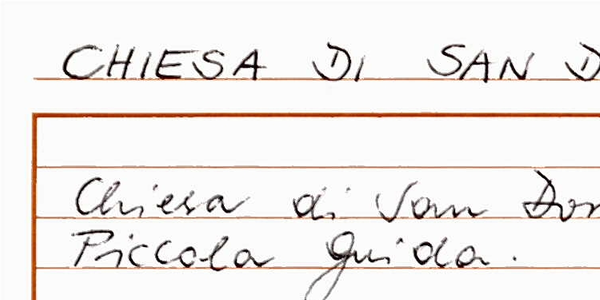 CHIESA DI SAN D
Chiesa di San Don
Piccola guida.